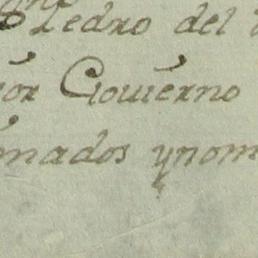 Pedro del
ior Gouierno
mados ynom